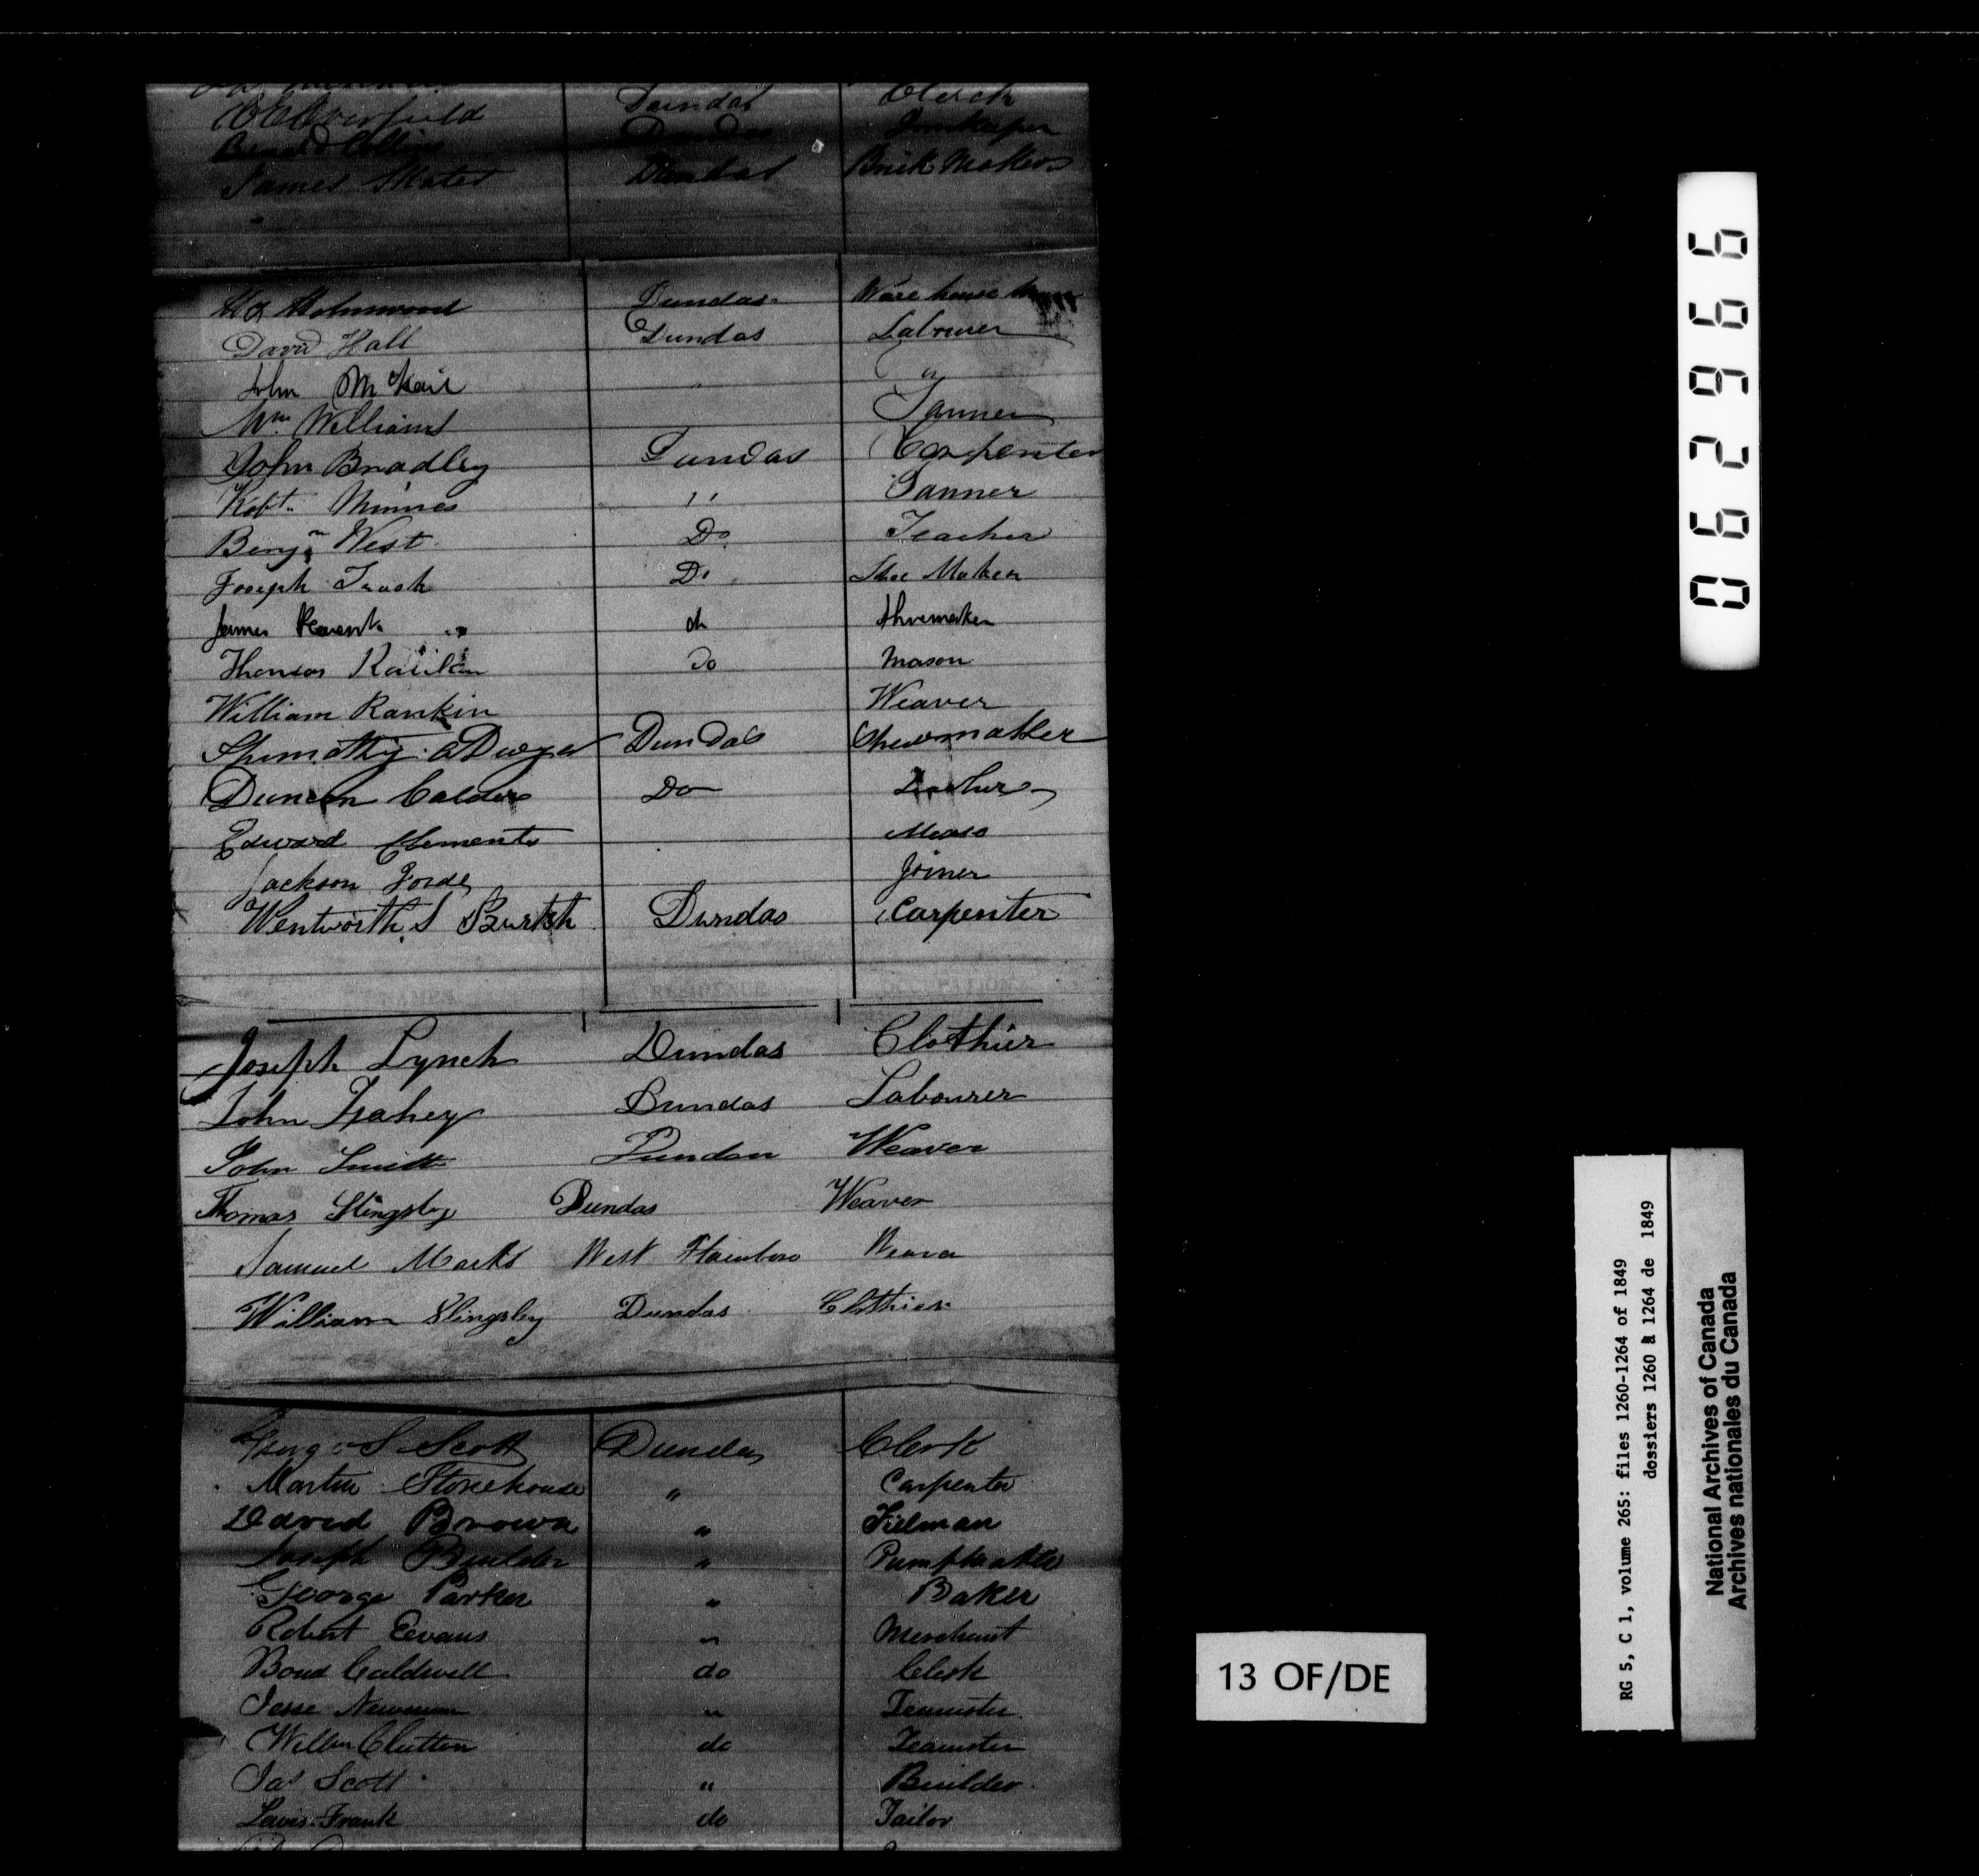 Dundas Clerk
Bernard Collins Dundas Innkeeper
James Skates Dundas Brick Maker
Holmwood Dundas Ware house
David Hall Dundas Labourer
John "
Wm Williams Tanner
John Bradley Dundas Carpenter
Robt. Minnes " Tanner
Benjn West Do Teacher
Joseph Do Shoe Maker
James do Shoemaker
Thomas Do Mason
William Rankin Weaver
Dundas
Duncan Calder Do
Edward Clements
Jackson Forde Joiner
Wentworth S Dundas Carpenter
NAMES RESIDENCE OCCUPATION
Joseph Lynch Dundas Clothier
John Fahey Dundas Labourer
John Smith Dundas Weaver
Thomas Slingsby Dundas Weaver
Samuel Marks West Flamboro Weaver
William Slingsby Dundas Clothier
S Scott Dundas Clerk
Martin Stonehouse " Carpenter
David Brown "
Joseph Builder " Pumpmaker
George Parker " Baker
Robert Eevans " Merchant
Bond Caldwell do Clerk
Jesse Newman " Teamster
Clutten do Teamster
Jas Scott " Builder
Lewis Frank do Tailor
062966
13 OF/DE
RG 5, C 1, volume 265: files 1260-1264 of 1849
dossiers 1260 à 1264 de 1849
National Archives of Canada
Archives nationales du Canada